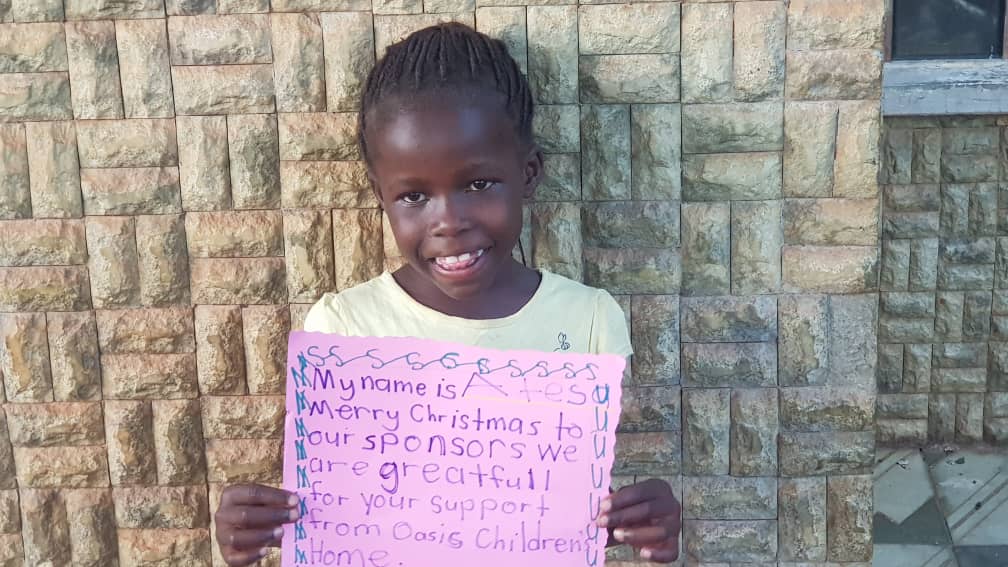 My name is Ates
Merry Christmas to
our sponsors we
are greatfull
for your support
from Oasis Children's
Home.